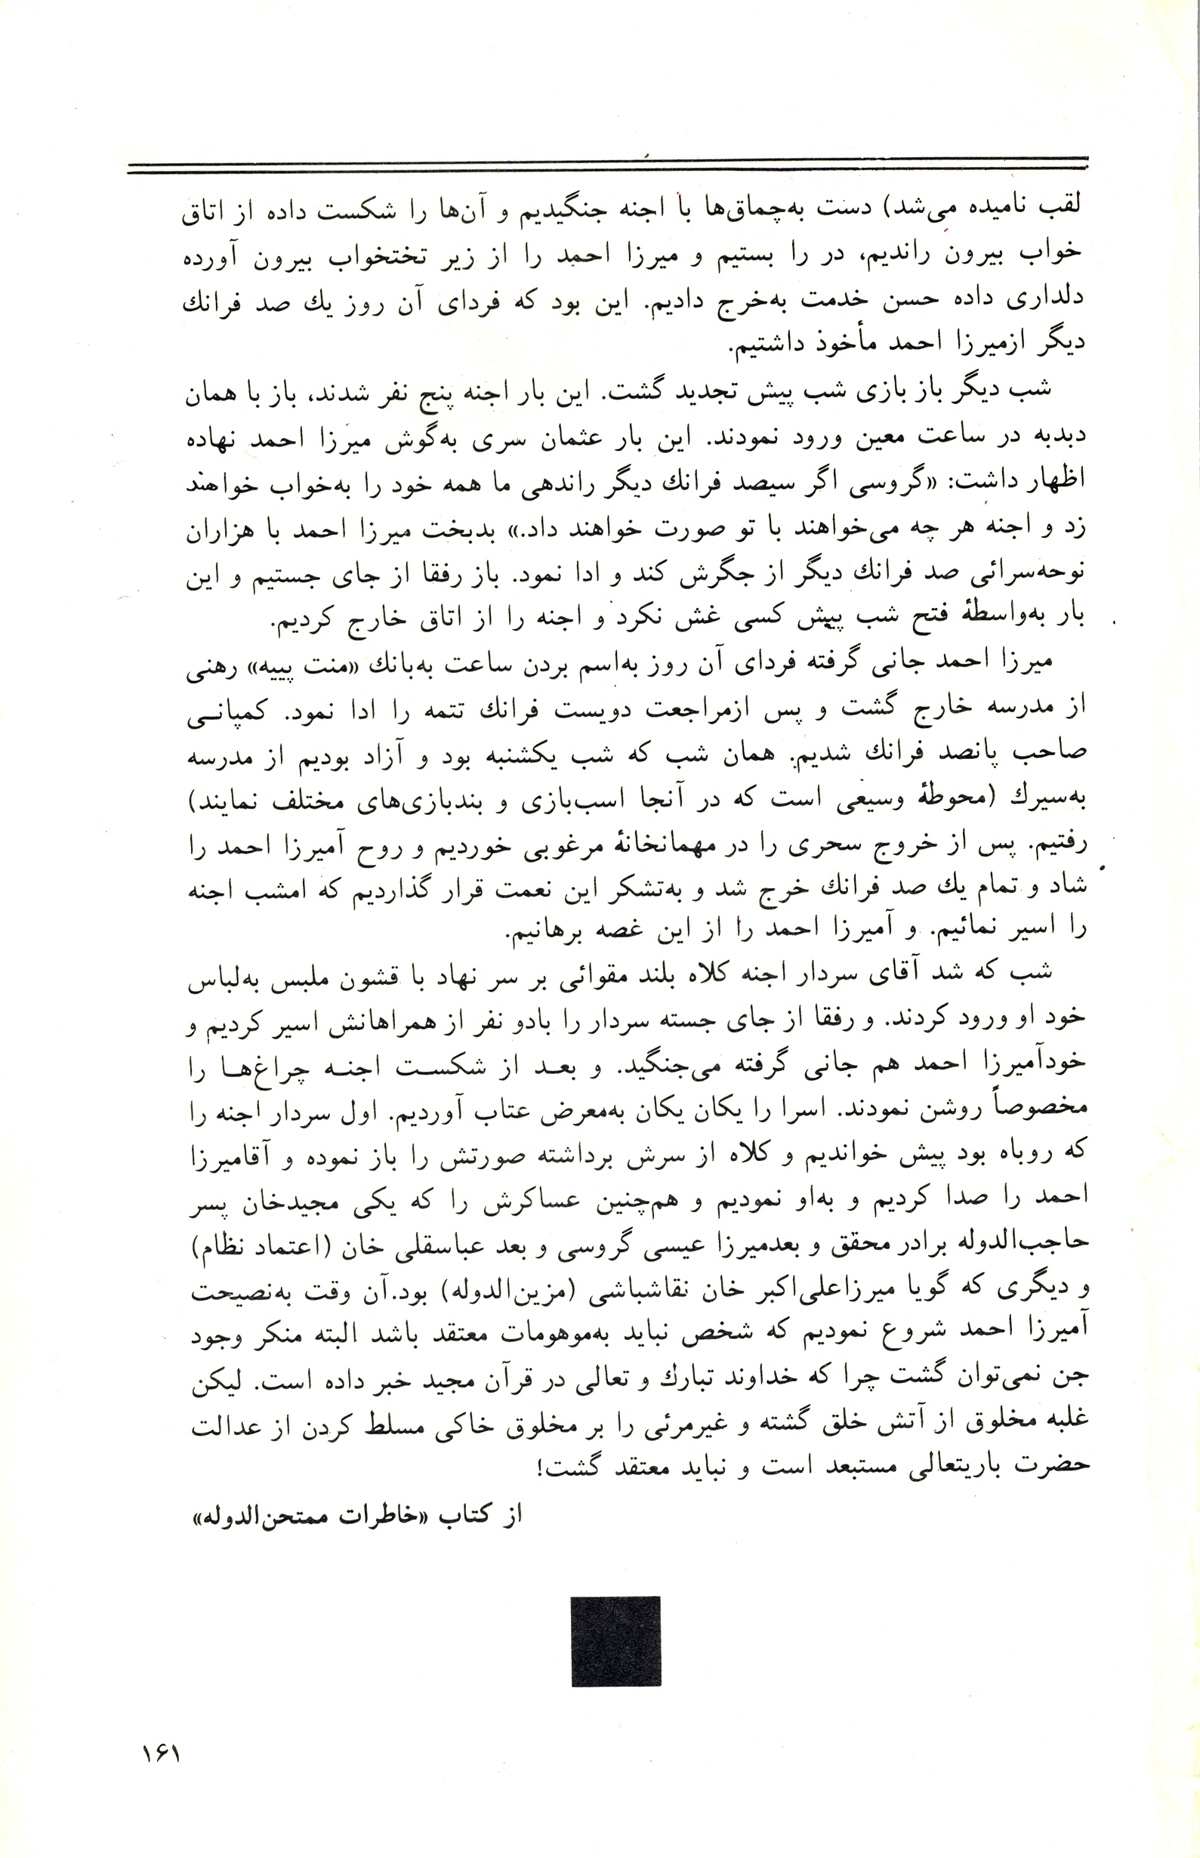 لقب نامیده می‌شد) دست به‌چماق‌ها با اجنه جنگیدیم و آن‌ها را شکست داده از اتاق
خواب بیرون راندیم، در را بستیم و میرزا احمد را از زیر تختخواب بیرون آورده
دلداری داده حسن خدمت به‌خرج دادیم. این بود که فردای آن روز یك صد فرانك
دیگر ازمیرزا احمد مأخوذ داشتیم.
شب دیگر باز بازی شب پیش تجدید گشت. این بار اجنه پنج نفر شدند، باز با همان
دبدبه در ساعت معین ورود نمودند. این بار عثمان سری به‌گوش میرزا احمد نهاده
اظهار داشت: «گروسی اگر سیصد فرانك دیگر راندهی ما همه خود را به‌خواب خواهند
زد و اجنه هر چه می‌خواهند با تو صورت خواهند داد.» بدبخت میرزا احمد با هزاران
نوحه‌سرائی صد فرانك دیگر از جگرش کند و ادا نمود. باز رفقا از جای جستیم و این
بار به‌واسطهٔ فتح شب پیش کسی غش نکرد و اجنه را از اتاق خارج کردیم.
میرزا احمد جانی گرفته فردای آن روز به‌اسم بردن ساعت به‌بانك «منت پییه» رهنی
از مدرسه خارج گشت و پس ازمراجعت دویست فرانك تتمه را ادا نمود. کمپانـی
صاحب پانصد فرانك شدیم. همان شب که شب یکشنبه بود و آزاد بودیم از مدرسه
به‌سیرك (محوطهٔ وسیعی است که در آنجا اسب‌بازی و بندبازی‌های مختلف نمایند)
رفتیم. پس از خروج سحری را در مهمانخانهٔ مرغوبی خوردیم و روح آمیرزا احمد را
شاد و تمام یك صد فرانك خرج شد و به‌تشکر این نعمت قرار گذاردیم که امشب اجنه
را اسیر نمائیم. و آمیرزا احمد را از این غصه برهانیم.
شب که شد آقای سردار اجنه کلاه بلند مقوائی بر سر نهاد با قشون ملبس به‌لباس
خود او ورود کردند. و رفقا از جای جسته سردار را بادو نفر از همراهانش اسیر کردیم و
خودآمیرزا احمد هم جانی گرفته می‌جنگید. و بعـد از شکسـت اجنـه چراغ‌هـا را
مخصوصاً روشن نمودند. اسرا را یکان یکان به‌معرض عتاب آوردیم. اول سردار اجنه را
که روباه بود پیش خواندیم و کلاه از سرش برداشته صورتش را باز نموده و آقامیرزا
احمد را صدا کردیم و به‌او نمودیم و هم‌چنین عساکرش را که یکی مجیدخان پسر
حاجب‌الدوله برادر محقق و بعدمیرزا عیسی گروسی و بعد عباسقلی خان (اعتماد نظام)
و دیگری که گویا میرزاعلی‌اکبر خان نقاشباشی (مزین‌الدوله) بود.آن وقت به‌نصیحت
آمیرزا احمد شروع نمودیم که شخص نباید به‌موهومات معتقد باشد البته منکر وجود
جن نمی‌توان گشت چرا که خداوند تبارك و تعالی در قرآن مجید خبر داده است. لیکن
غلبه مخلوق از آتش خلق گشته و غیرمرئی را بر مخلوق خاکی مسلط کردن از عدالت
حضرت باریتعالی مستبعد است و نباید معتقد گشت!
از کتاب «خاطرات ممتحن‌الدوله»
۱۶۱